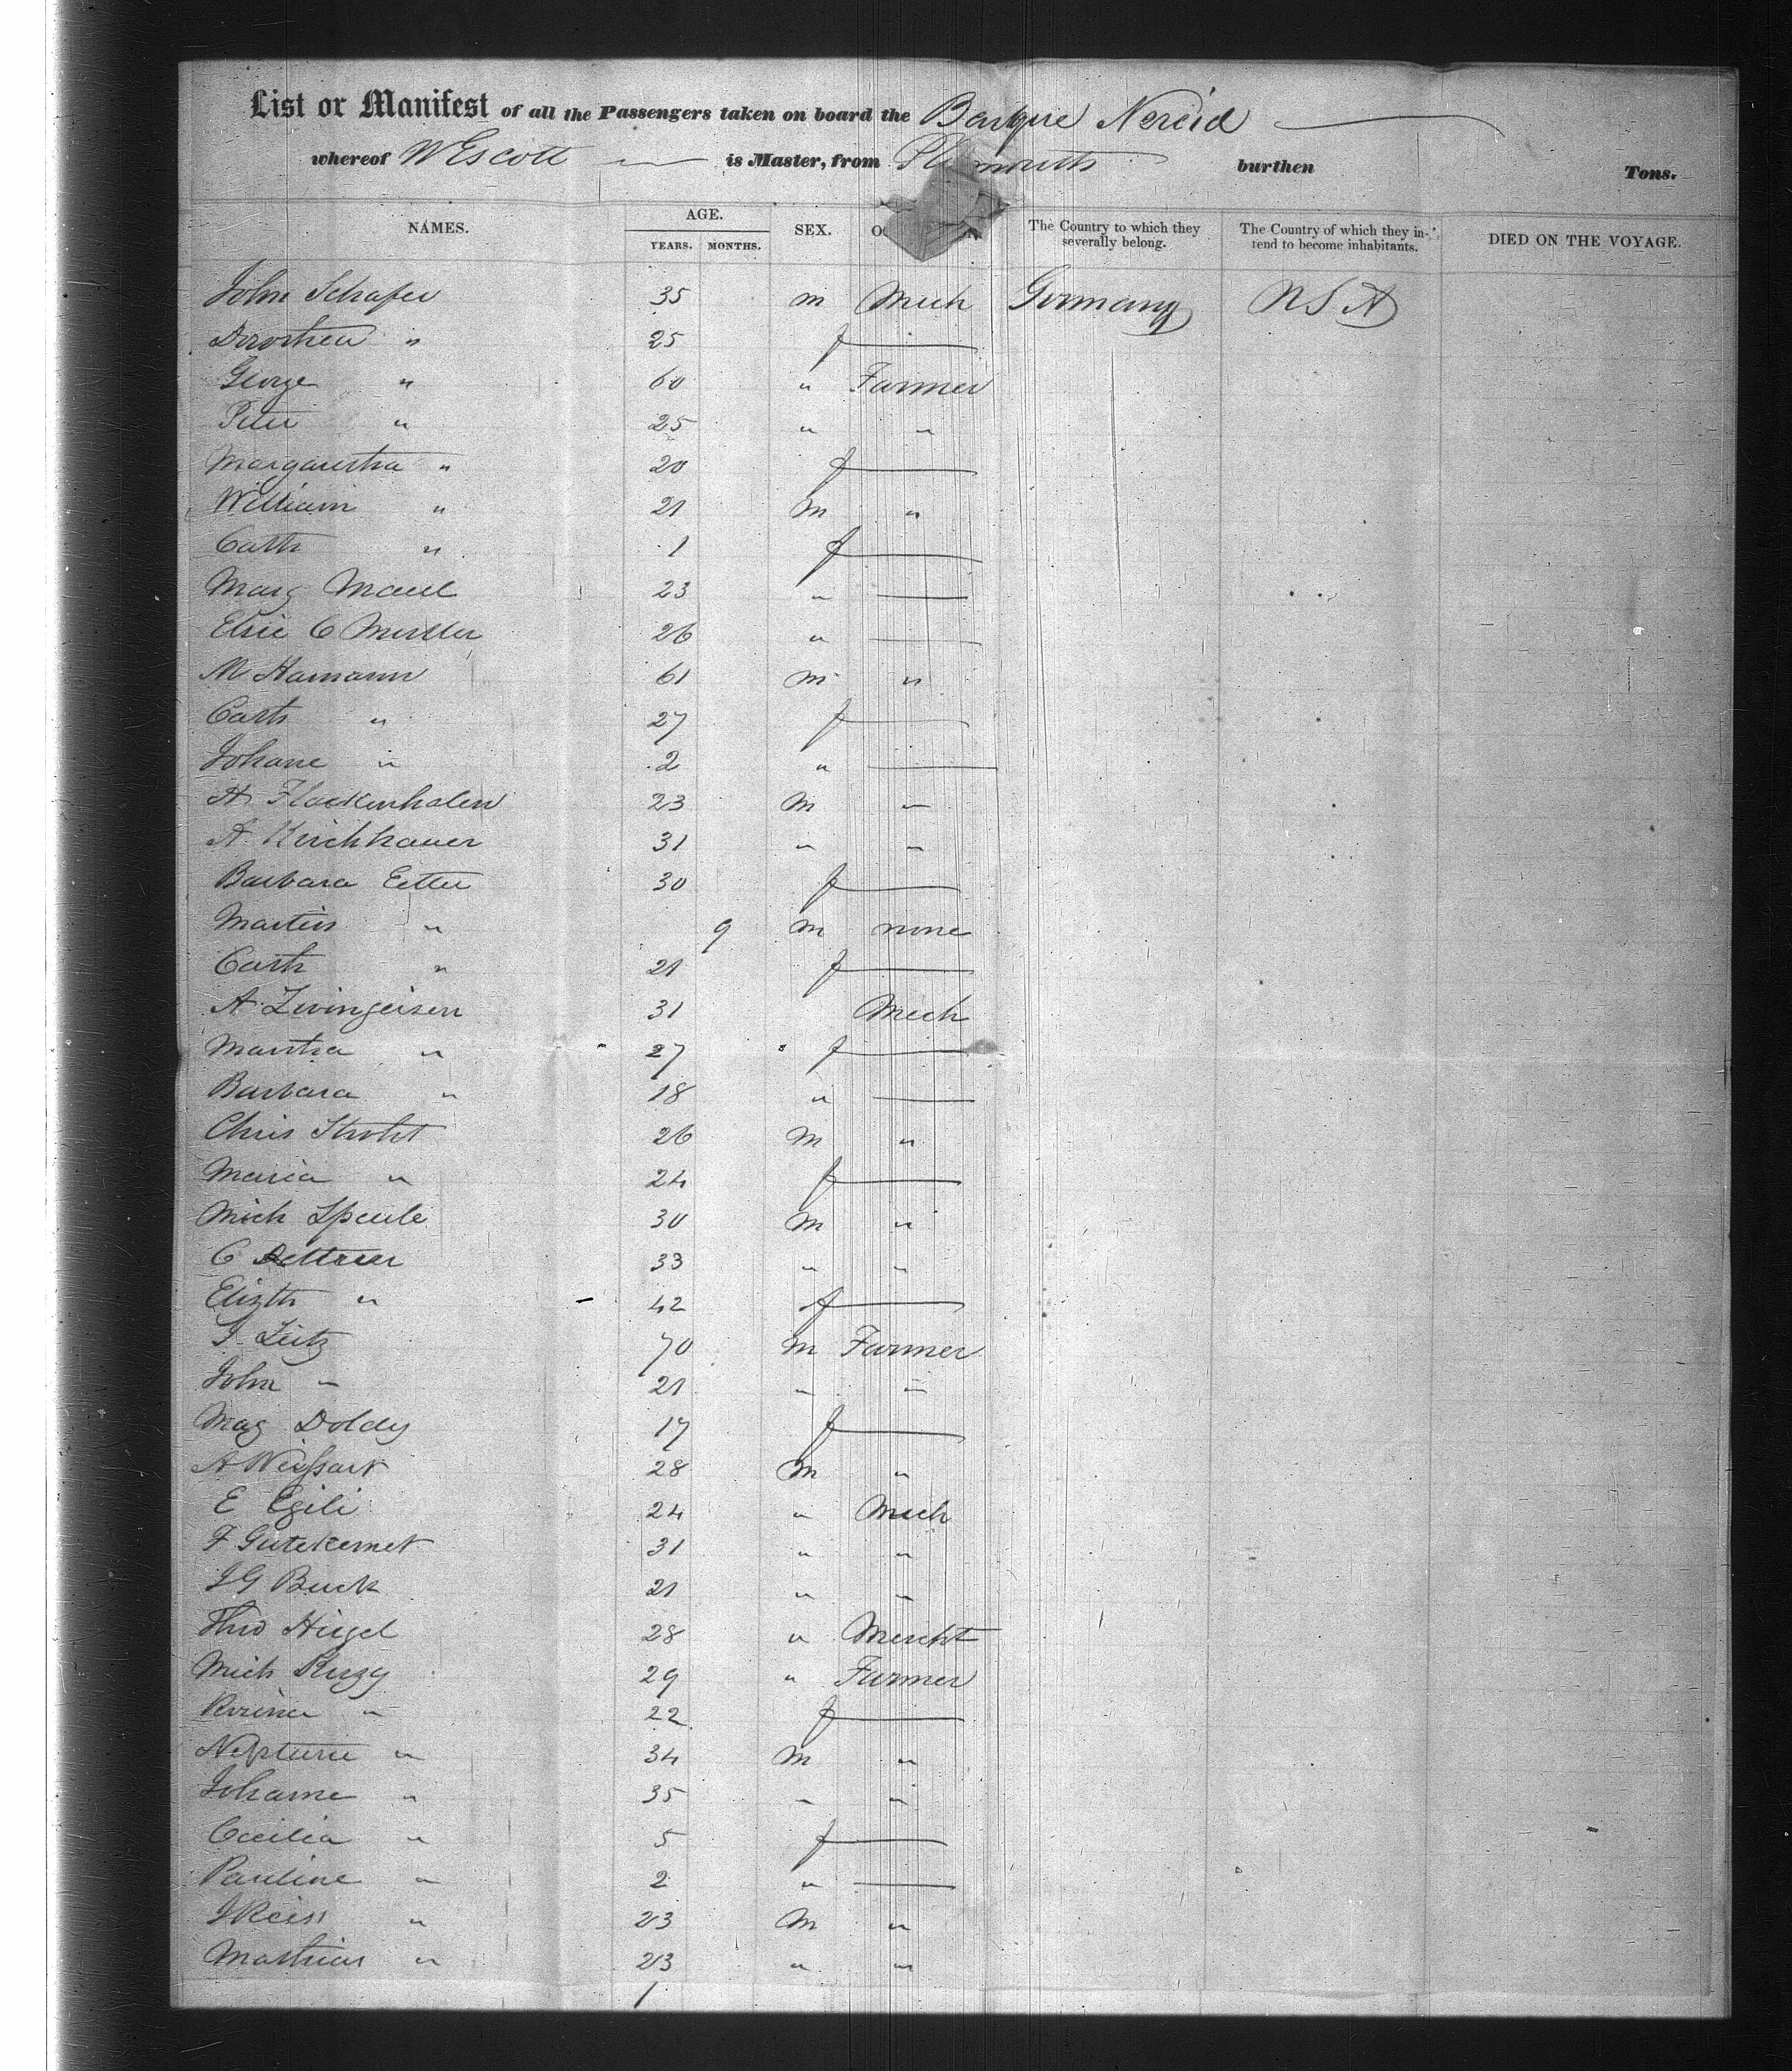 List or Manifest of all the Passengers taken on board the Barque Nereid
whereof W Escott is Master, from Plymouth burthen Tons.
NAMES. AGE. YEARS. MONTHS. SEX. The Country to which they severally belong. The Country of which they intend to become inhabitants. DIED ON THE VOYAGE.
John Schafer 35 m Mech Germany U S A
Dorothea " 25 f
George " 60 " Farmer
Peter " 25 " "
Margaretha " 20 f
William " 21 m "
Cath " 1 f
Marg Maul 23 "
Elsie C 26 "
M Hamann 61 m "
Cath " 27 f
Johane " 2 "
H Flackenhalen 23 m "
A Kirchhauer 31 " "
Barbara Etter 30 f
Martin " 9 m none
Cath " 21 f
A Zwingeisen 31 Mech
Martha " 27 f
Barbara " 18 "
Chris Stroht 26 m "
Maria " 24 f
Mich Speule 30 m "
C 33 " "
Elizth " 42 f
J Zeitz 70 m Farmer
John " 21 " "
Mag Doldy 17 f
A 28 m "
E Egili 24 " Mech
F Gutekernet 31 " "
J G Buck 21 " "
Theo Hugel 28 " Mercht
Mich 29 " Farmer
" 22 f
Neptune " 34 m "
Johanne " 35 " "
Cecilia " 5 f
Pauline " 2 "
J Reiss " 23 m "
Mathias " 23 " "